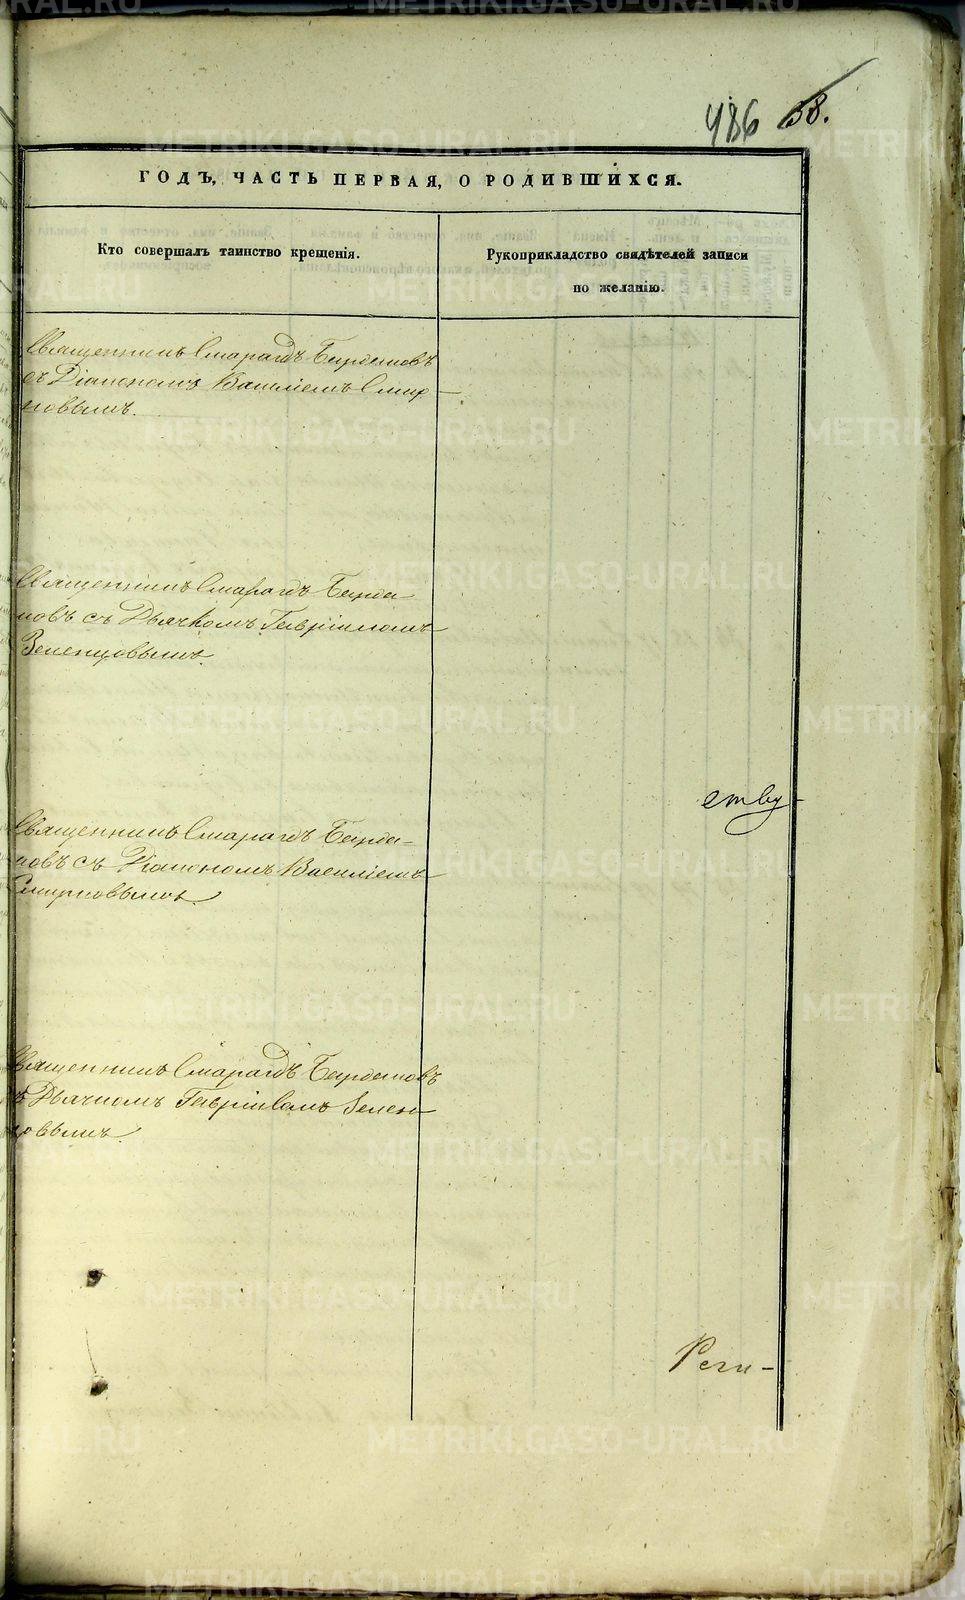 486 58.
ГОДЪ, ЧАСТЬ ПЕРВАЯ, О РОДИВШИХСЯ.
Кто совершалъ таинство крещенія.
Рукоприкладство свидѣтелей записи
по желанію.
Священникъ Смарагдъ
съ Діакономъ Василіемъ Смир-
новымъ.
Священникъ Смарагдъ
новъ съ Дьячкомъ Гавріиломъ
Зеленцовымъ.
ству-
Священникъ Смарагдъ
новъ съ Діакономъ Василіемъ
Смирновымъ.
Священникъ Смарагдъ
съ Дьячкомъ Гавріиломъ Зелен-
цовымъ.
Реги-
METRIKI.GASO-URAL.RU